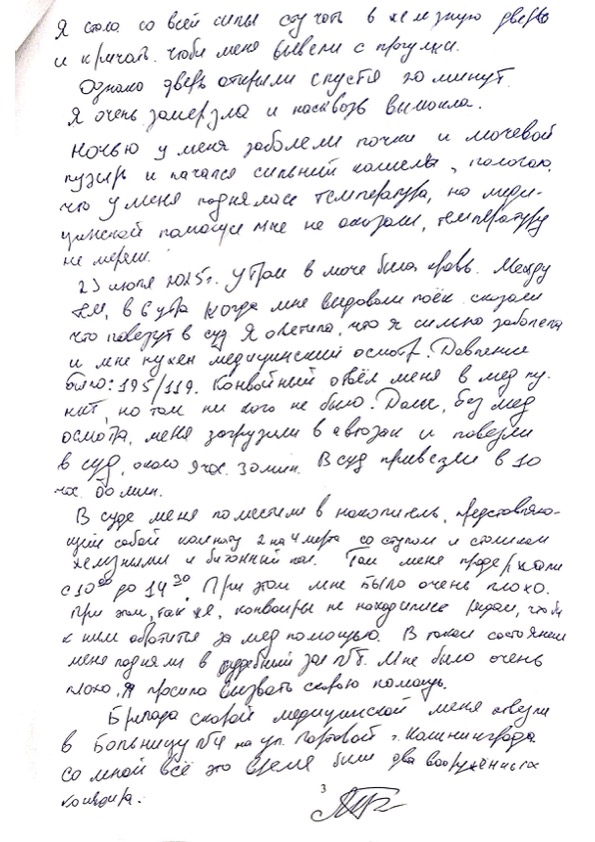 Я стала со всей силы стучать в железную дверь
и кричать, чтобы меня вывели с прогулки.
Однако дверь открыли спустя 20 минут.
Я очень замерзла и насквозь вымокла.
Ночью у меня заболели почки и мочевой
пузырь и начался сильный кашель, полагаю,
что у меня поднялась температура, но меди-
цинской помощи мне не оказали, температуру
не мерили.
23 июля 2025г. утром в моче была кровь. Между
тем, в 6 утра когда мне выдавали паёк сказали
что повезут в суд. Я ответила, что я сильно заболела
и мне нужен медицинский осмотр. Давление
было: 195/119. Конвойный отвёл меня в мед пу-
нкт, но там ни кого не было. Далее, без мед
осмотра, меня загрузили в автозак и повезли
в суд, около 9 час. 30 мин. В суд привезли в 10
час. 00 мин.
В суде меня поместили в накопитель, представляю-
щий собой комнату 2 на 4 метра со стулом и столиком
железными и бетонный пол. Там меня продержали
с 10 00 до 14 30. При этом мне было очень плохо.
При этом, так же, конвоиры не находились рядом, чтобы
к ним обратится за мед помощью. В таком состоянии
меня подняли в судебный зал №8. Мне было очень
плохо. Я просила вызвать скорую помощь.
Бригада скорой медицинской меня отвезли
в Больницу №4 на ул. Портовой г. Калининграда.
Со мной всё это время были два вооружённых
конвоира.
3